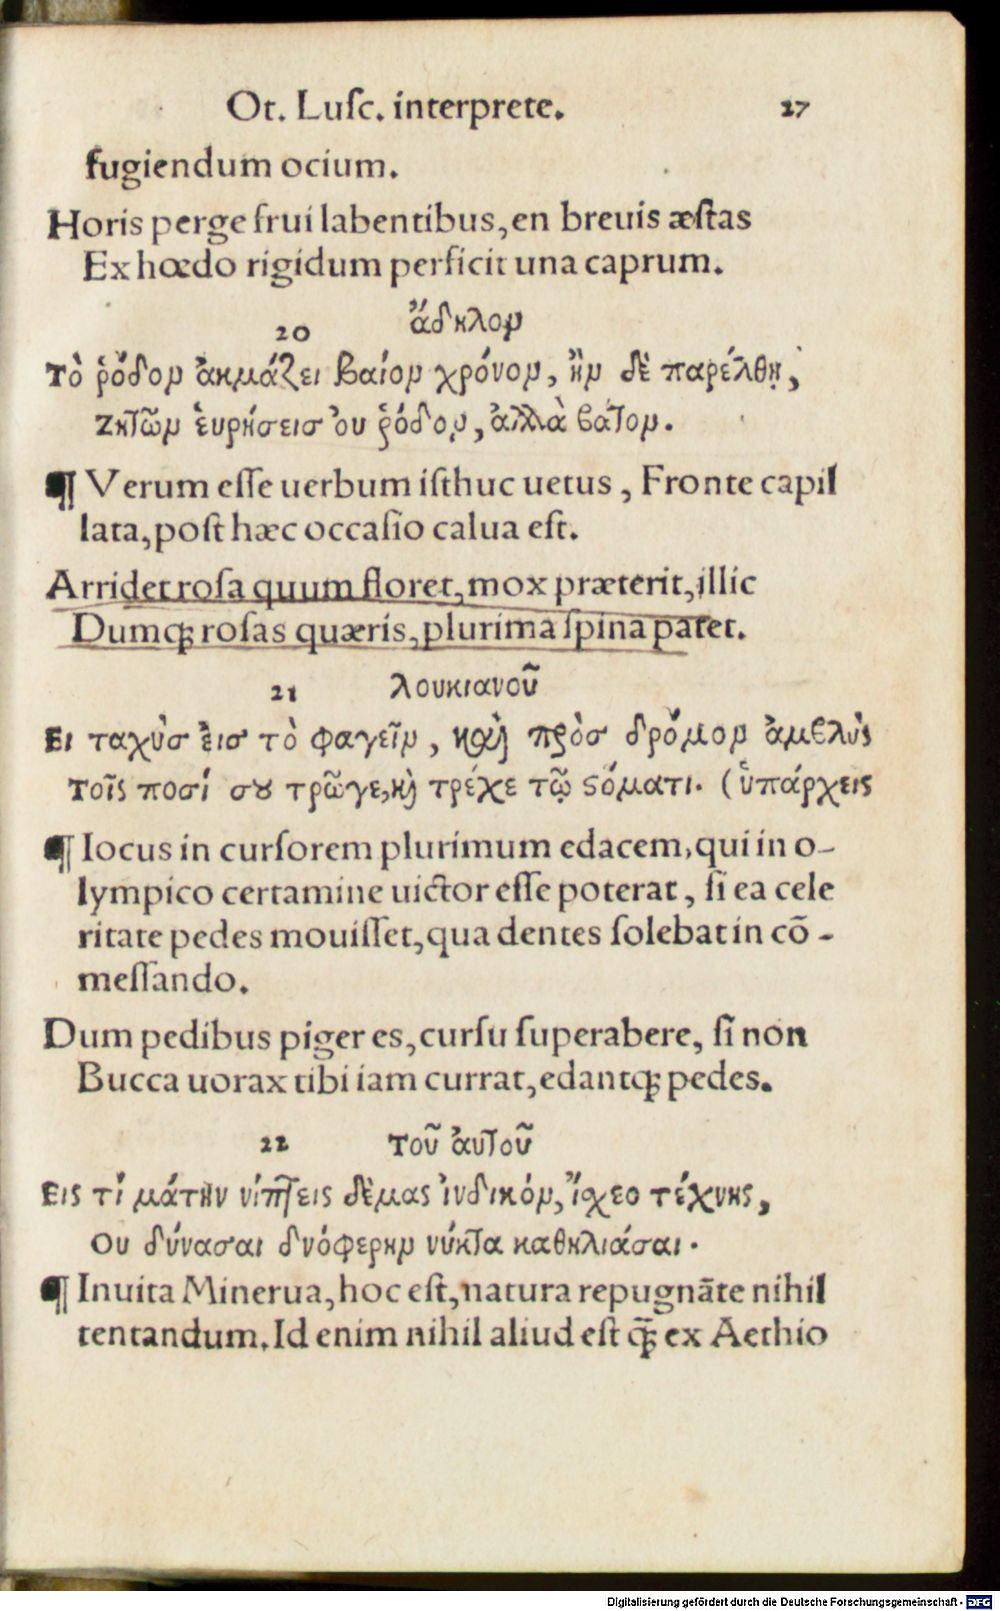 Ot. Luſc. interprete. 27
fugiendum ocium.
Horis perge frui labentibus, en breuis æſtas
Ex hœdo rigidum perficit una caprum.
20 ἄδηλον
Τὸ ῥόδον ἀκμάζει βαίον χρόνον, ἢν δὲ παρέλθῃ,
Ζητῶν ἑυρήσεισ ὀυ ῥόδον, ἀλλὰ βάτον.
¶ Verum eſſe uerbum iſthuc uetus, Fronte capil
lata, poſt hæc occaſio calua eſt.
Arridet roſa quum floret, mox præterit, illic
Dumq; roſas quæris, plurima ſpina patet.
21 λουκιανοῦ
Ει ταχὺσ ἐισ τὸ φαγεῖν, καὶ πρὸσ δρόμον ἀμβλὺς
Τοῖς ποσί σου τρῶγε, καὶ τρέχε τῷ στόματι. (ὑπάρχεις
¶ Iocus in curſorem plurimum edacem, qui in o-
lympico certamine uictor eſſe poterat, ſi ea cele
ritate pedes mouiſſet, qua dentes ſolebat in cō-
meſſando.
Dum pedibus piger es, curſu ſuperabere, ſi non
Bucca uorax tibi iam currat, edantq; pedes.
22 Τοῦ ἀυτοῦ
Εις τί μάτην νίπτεις δέμας ἰνδικόν, ἴσχεο τέχνης,
Ου δύνασαι δνόφερην νύκτα καθηλιάσαι.
¶ Inuita Minerua, hoc eſt, natura repugnāte nihil
tentandum. Id enim nihil aliud eſt q̄; ex Aethio
Digitalisierung gefördert durch die Deutsche Forschungsgemeinschaft - DFG